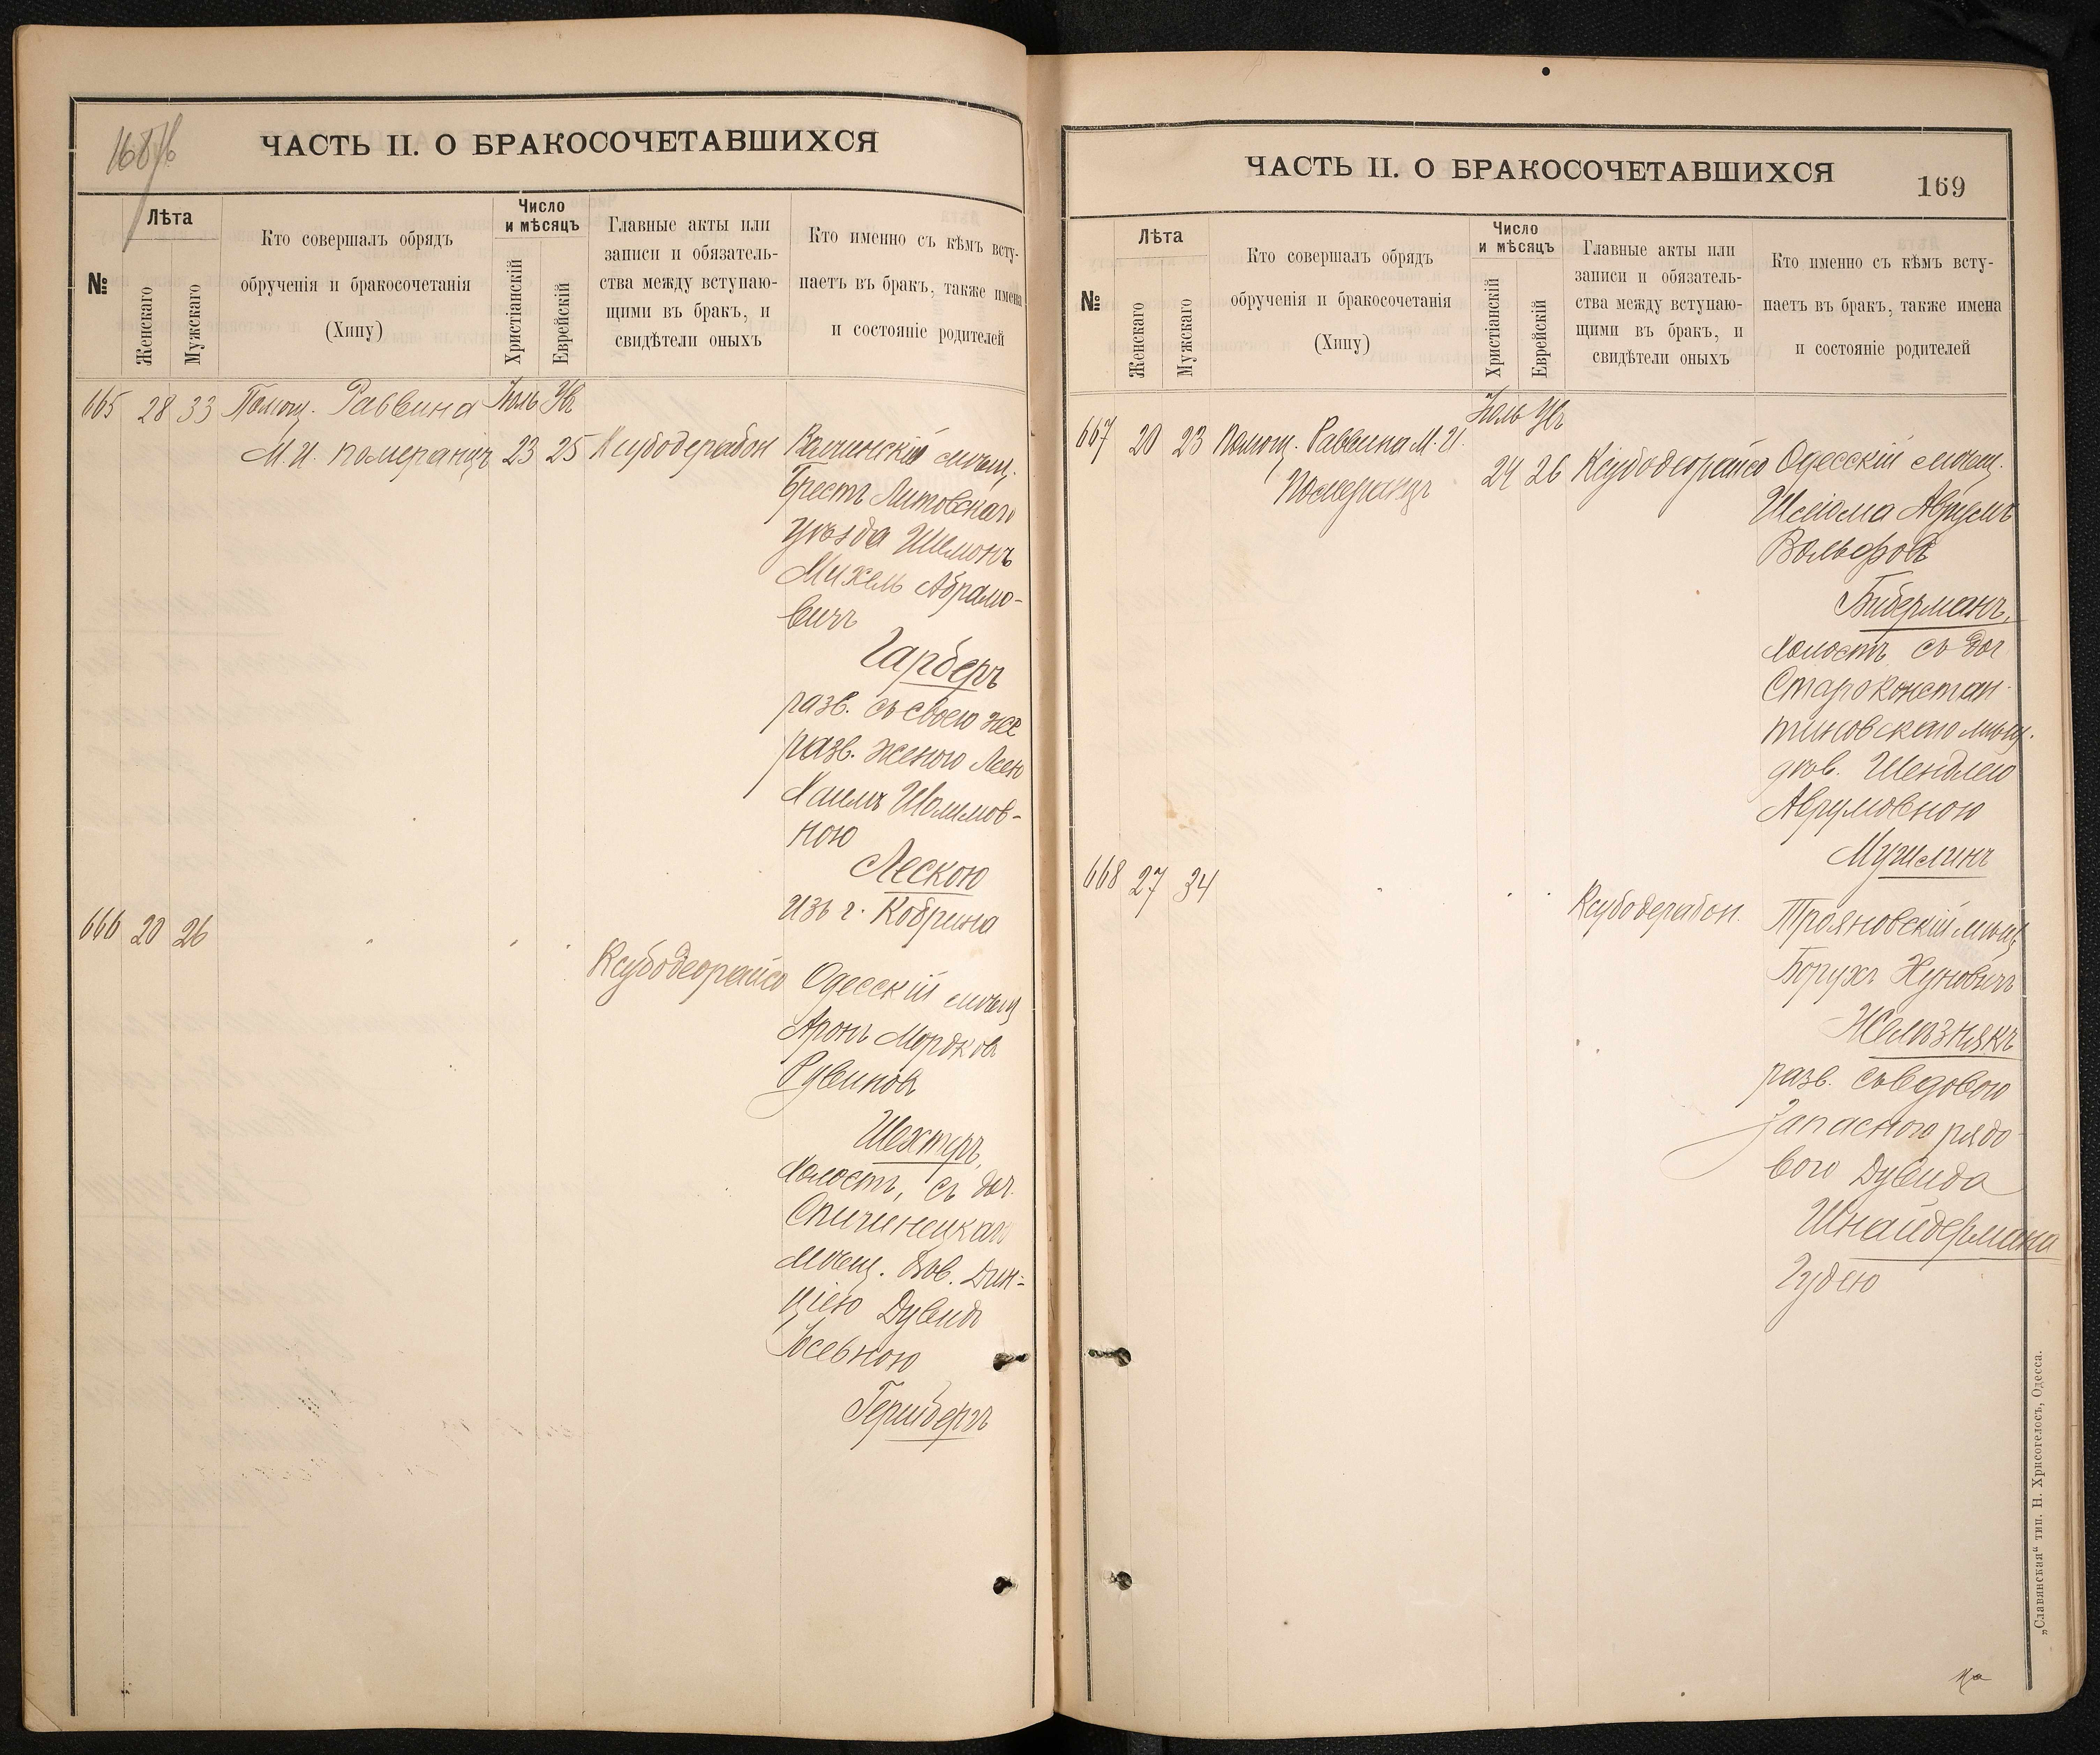 168 об
ЧАСТЬ II. О БРАКОСОЧЕТАВШИХСЯ
№
Лѣта
Женскаго
Мужскаго
Кто совершалъ обрядъ
обрученія и бракосочетанія
(Хипу)
Число
и мѣсяцъ
Христіанскій
Еврейскій
Главные акты или
записи и обязатель-
ства между вступаю-
щими въ бракъ, и
свидѣтели оныхъ
Кто именно съ кѣмъ всту-
паетъ въ бракъ, также имена
и состояніе родителей
665 28 33 Помощ. Раввина Іюль Ув
М. И. Померанцъ 23 25 Ксубодерабон
мѣщ.
Брестъ Литовскаго
уѣзда Шимонъ
Михель Абрамо-
вичъ
Гарберъ
разв. съ своею же
разв. женою Леею
Шлиомов-
ною
Лескою
изъ г. Кобрина
666 20 26 " " "
Ксубодеорайсо
Одесскій мѣщ
Аронъ Мордков
Рувинов
Шехтеръ,
холостъ, съ доч.
Спичинецкаго
мѣщ. дѣв. Дин-
ціею Дувидъ
Іосевною
Гершбергъ
ЧАСТЬ II. О БРАКОСОЧЕТАВШИХСЯ
169
№
Лѣта
Женскаго
Мужскаго
Кто совершалъ обрядъ
обрученія и бракосочетанія
(Хипу)
Число
и мѣсяцъ
Христіанскій
Еврейскій
Главные акты или
записи и обязатель-
ства между вступаю-
щими въ бракъ, и
свидѣтели оныхъ
Кто именно съ кѣмъ всту-
паетъ въ бракъ, также имена
и состояніе родителей
Іюль Ув
667 20 23 Помощ. Раввина М. И.
Померанцъ 24 26 Ксубодеорайсо
Одесскій мѣщ.
Шліома Аврумъ
Вольфов
Биберманъ,
холостъ съ доч
Староконстан-
тиновскаго мѣщ.
дѣв. Шендлею
Аврумовною
Мушлинъ
668 27 34 " " "
Ксубодерабон.
Трояновскій мѣщ
Борухъ Хуновичъ
Желѣзнякъ
разв. съ вдовою
Запасного рядо-
вого Дувида
Шнайдермана
Гудею
„Славянская“ тип. Н. Хрисогелосъ, Одесса.